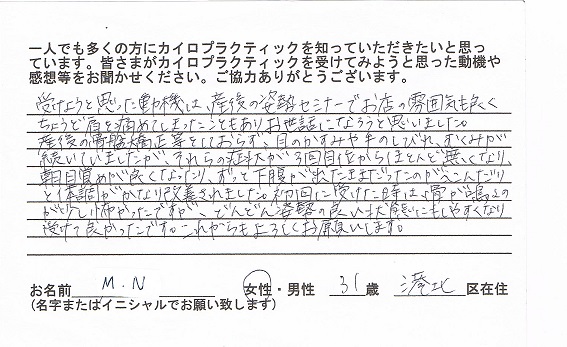 一人でも多くの方にカイロプラクティックを知っていただきたいと思っ
ています。皆さまがカイロプラクティックを受けてみようと思った動機や
感想等をお聞かせください。ご協力ありがとうございます。
受けようと思った動機は、産後の姿勢セミナーでお店の雰囲気も良く
ちょうど肩を痛めてしまったこともありお世話になろうと思いました。
産後の骨盤矯正等をしておらず、目のかすみや手のしびれ、むくみが
続いていましたが、それらの症状が3回目位からほとんど無くなり、
朝目覚めが良くなったり、ずっと下腹が出たままだったのがへこんだり
と体調がかなり改善されました。初回に受けた時は、骨が鳴るの
が少し怖かったですが、どんどん姿勢の良い状態にもしやすくなり
受けて良かったです。これからもよろしくお願いします。
お名前 M.N 女性・男性 31歳 港北 区在住
(名字またはイニシャルでお願い致します)